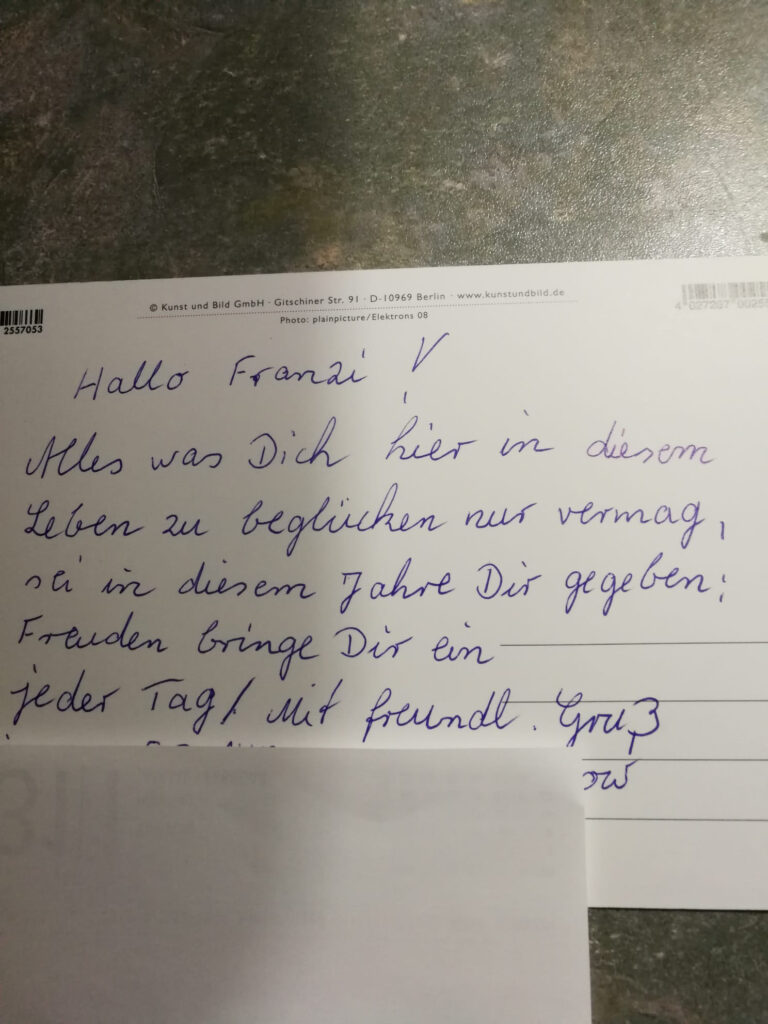 © Kunst und Bild GmbH · Gitschiner Str. 91 · D-10969 Berlin · www.kunstundbild.de
Photo: plainpicture/Elektrons 08
2557053
Hallo Franzi !
Alles was Dich hier in diesem
Leben zu beglücken nur vermag,
sei in diesem Jahre Dir gegeben;
Freuden bringe Dir ein
jeder Tag! Mit freundl. Gruß